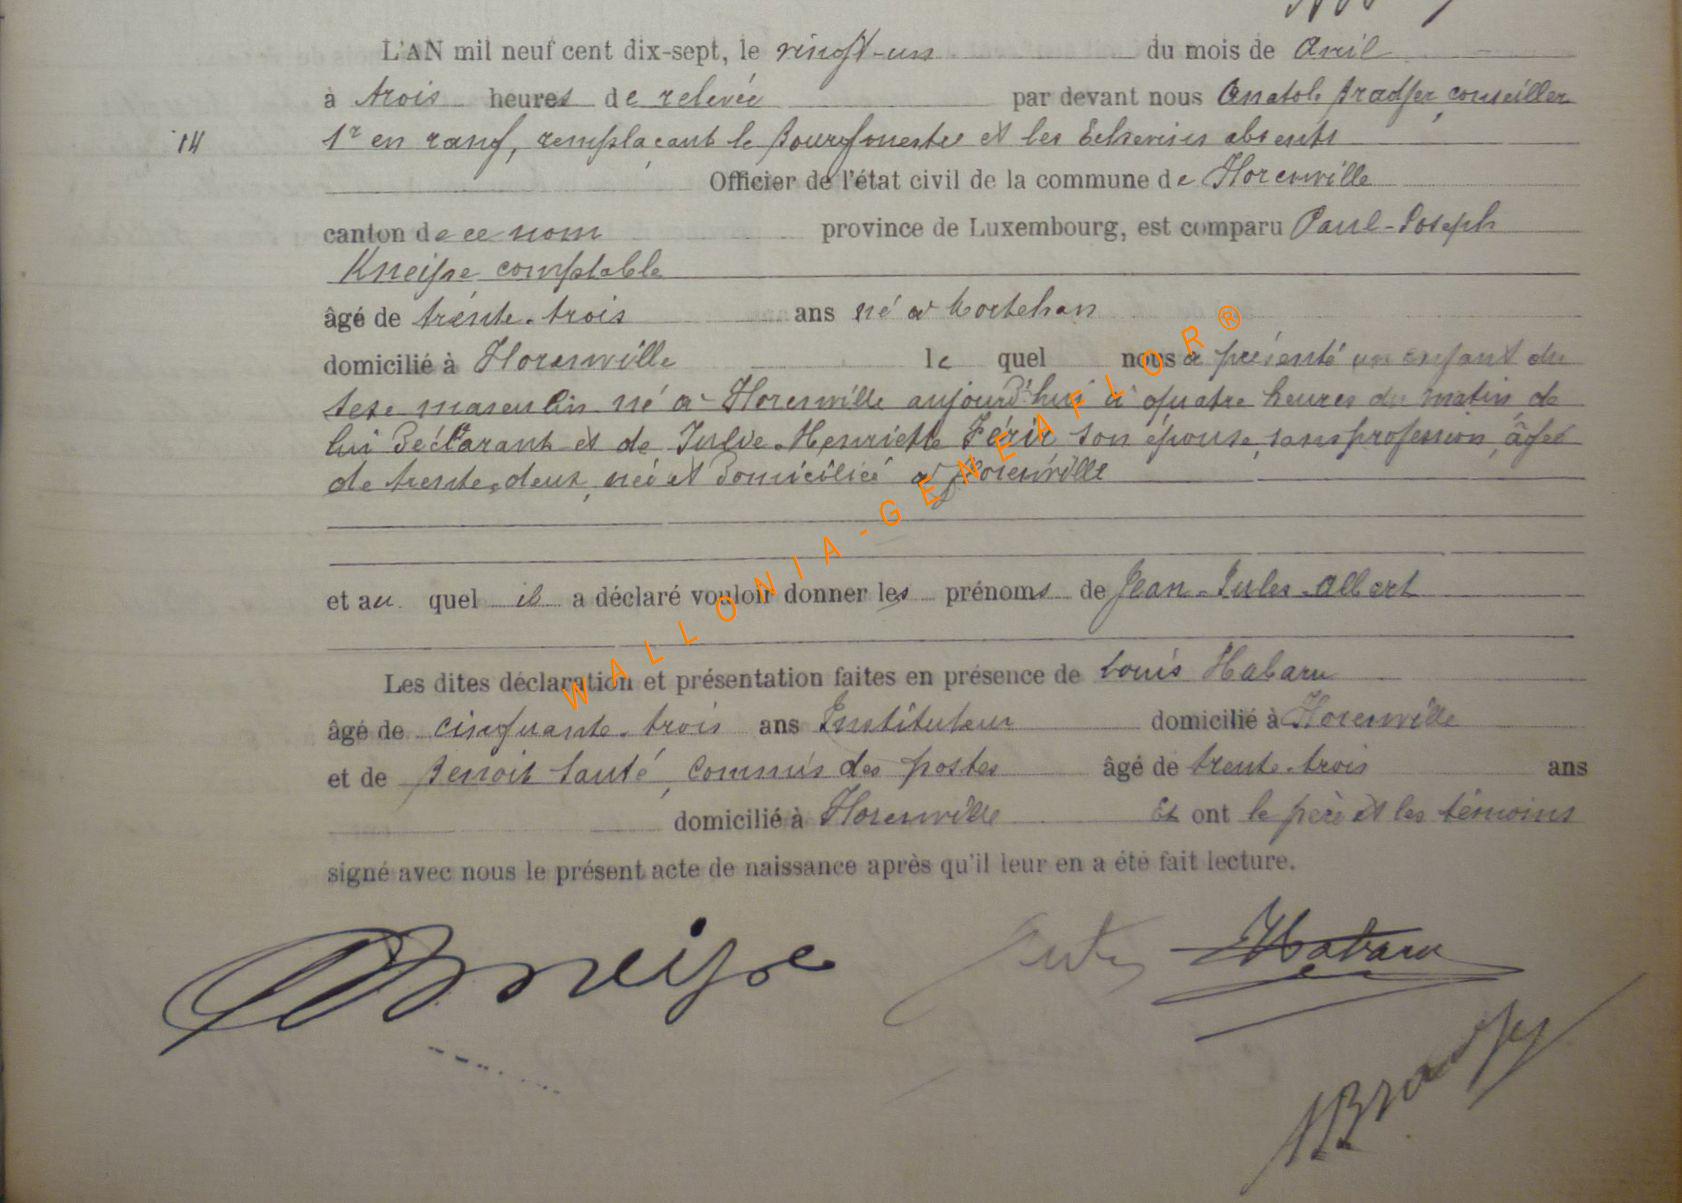 L'AN mil neuf cent dix-sept, le vingt-un du mois de avril
à trois heures de relevée par devant nous Anatole Bradfer, conseiller
14 1r en rang, remplaçant le Bourgmestre et les Echevins absents
Officier de l'état civil de la commune de Florenville
canton de ce nom province de Luxembourg, est comparu Paul-Joseph
Kneipe, comptable
âgé de trente-trois ans né à Mortehan
domicilié à Florenville le quel nous a présenté un enfant du
sexe masculin né à Florenville aujourd'hui à quatre heures du matin de
lui déclarant et de Julie-Henriette Férir son épouse, sans profession, âgée
de trente-deux, née et domiciliée à Florenville
et au quel il a déclaré vouloir donner les prénoms de Jean-Jules-Albert
Les dites déclaration et présentation faites en présence de Louis Habaru
âgé de cinquante-trois ans Instituteur domicilié à Florenville
et de Benoit Lauté, commis des postes âgé de trente-trois ans
domicilié à Florenville Et ont le père et les témoins
signé avec nous le présent acte de naissance après qu'il leur en a été fait lecture.
Kneipe Habaru
ABradfer
WALLONIA-GENEAFLOR®